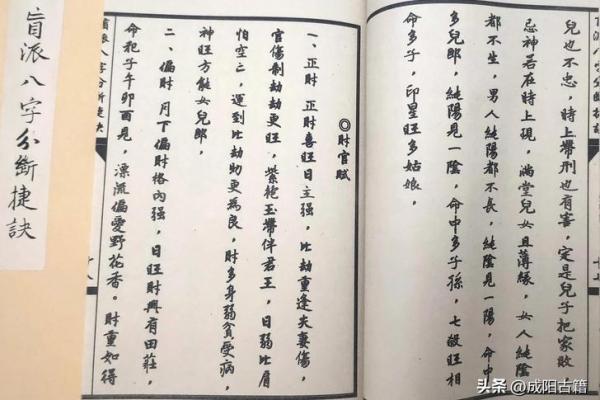 兒也不忠，時上帶刑也有害，定是兒子把家敗
忌神若在時上現，滿堂兒女且薄緣，女人純陰
都不生，男人純陽都不長，純陰見一陽，命中
多兒郎，純陽見一陰，命中多子孫，七殺旺相
命多子，印星旺多姑娘，
◎財官賦
一、正財 正財喜旺日主强，比劫重逢夫妻傷，
官傷制劫劫更旺，紫袍玉帶伴君王，日弱比肩
怕空亡，運到比劫劫更為良，財多身弱貧愛病，
神旺方能女兒郎，
二、偏財 月下偏財格內强，日旺財興有田莊，
命犯子午卯酉見 漂流偏愛野花香。財重如得
十八
盲派八字分斷捷訣
头条 @成阳古籍